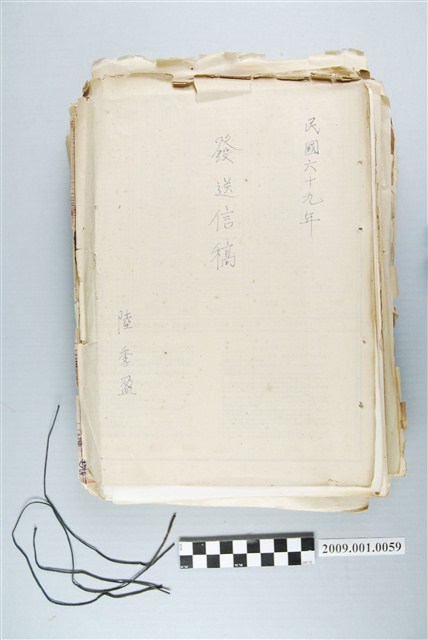 民國六十九年
發送信稿
陸季盈
2009.001.0059